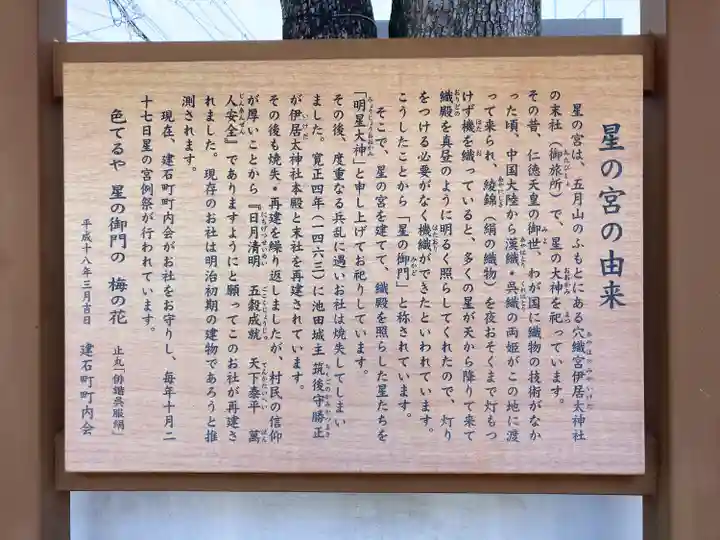 星の宮の由来
星の宮は、五月山のふもとにある穴織宮伊居太神社
の末社(御旅所)で、星の大神を祀っています。
その昔、仁徳天皇の御世、わが国に織物の技術がなか
った頃、中国大陸から漢織・呉織の両姫がこの地に渡
って来られ、綾錦(絹の織物)を夜おそくまで灯もつ
けず機を織っていると、多くの星が天から降りて来て
織殿を真昼のように明るく照らしてくれたので、灯り
をつける必要がなく機織ができたといわれています。
こうしたことから「星の御門」と称されています。
そこで、星の宮を建てて、織殿を照らした星たちを
「明星大神」と申し上げてお祀りしています。
その後、度重なる兵乱に遇いお社は焼失してしまい
ました。寛正四年(一四六三)に池田城主 筑後守勝正
が伊居太神社本殿と末社を再建されています。
その後も焼失・再建を繰り返しましたが、村民の信仰
が厚いことから『日月清明 五穀成就 天下泰平 萬
人安全』でありますようにと願ってこのお社が再建さ
れました。現存のお社は明治初期の建物であろうと推
測されます。
現在、建石町町内会がお社をお守りし、毎年十月二
十七日星の宮例祭が行われています。
色てるや 星の御門の 梅の花 止丸「俳諧呉服絹」
平成十八年三月吉日 建石町町内会